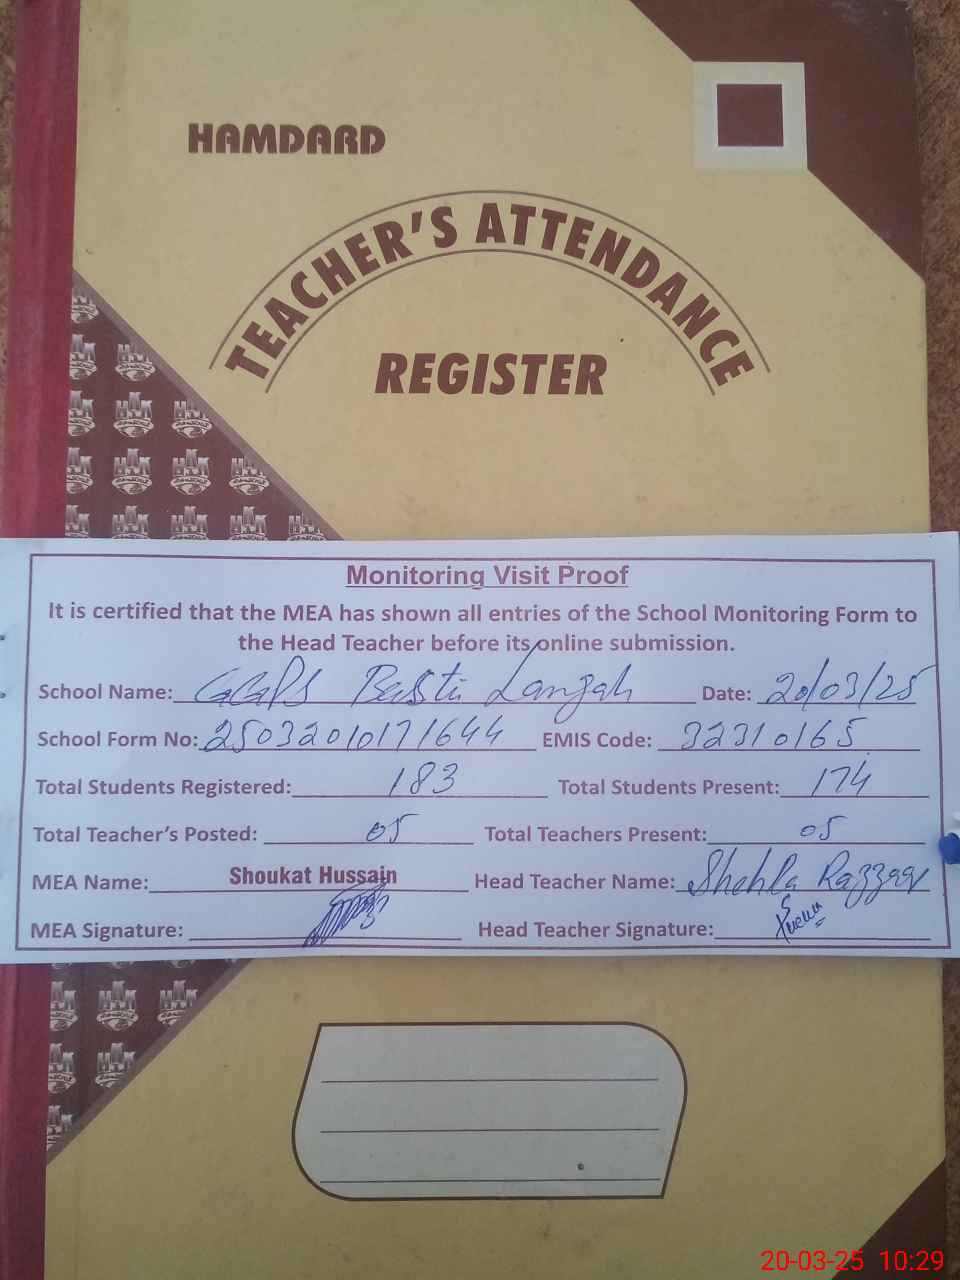 HAMDARD
TEACHER'S ATTENDANCE
REGISTER
Monitoring Visit Proof
It is certified that the MEA has shown all entries of the School Monitoring Form to
the Head Teacher before its online submission.
School Name: GGPS Basti Langah Date: 20/03/25
School Form No: 25032010171644 EMIS Code: 32310165
Total Students Registered: 183 Total Students Present: 174
Total Teacher's Posted: 05 Total Teachers Present: 05
MEA Name: Shoukat Hussain Head Teacher Name: Shehla Razzaq
MEA Signature: Head Teacher Signature:
20-03-25 10:29